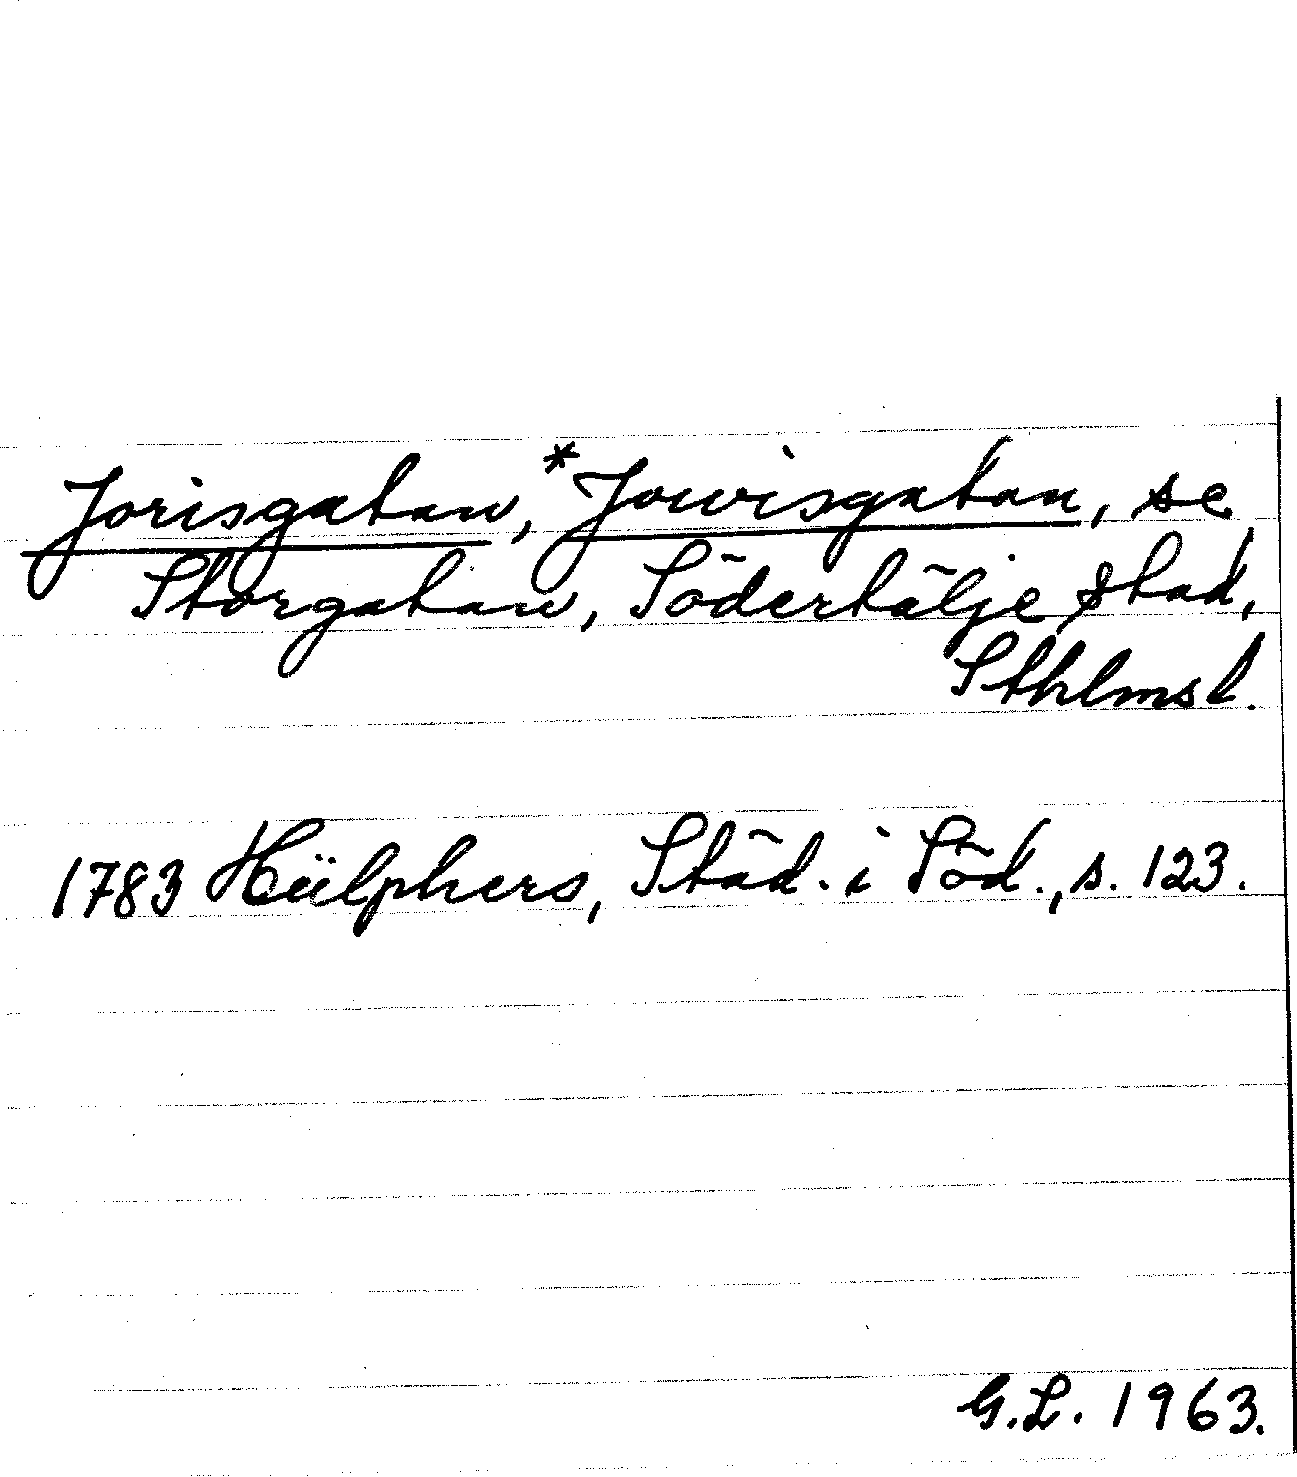 Jorisgatan, *Jowisgatan, se
Storgatan, Södertälje stad,
Sthlmsl.
1783 Hülphers, Städ. i Söd., s. 123.
G.L. 1963.